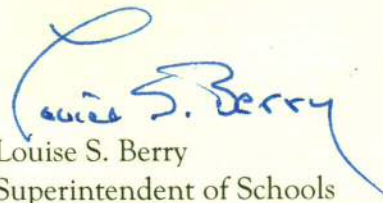 Louise S. Berry
Louise S. Berry
Superintendent of Schools